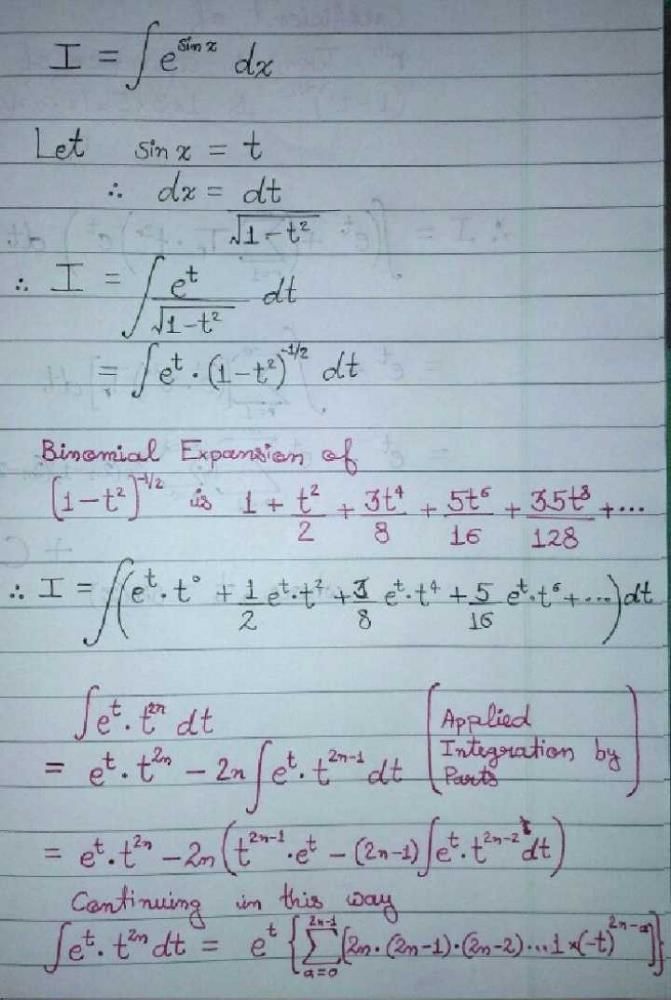 I = ∫ e^{sin x} dx
Let sin x = t
∴ dx = dt / √(1-t²)
∴ I = ∫ e^t / √(1-t²) dt
= ∫ e^t · (1-t²)^{-1/2} dt
Binomial Expansion of
(1-t²)^{-1/2} is 1 + t²/2 + 3t⁴/8 + 5t⁶/16 + 35t⁸/128 + ...
∴ I = ∫ (e^t · t⁰ + 1/2 e^t · t² + 3/8 e^t · t⁴ + 5/16 e^t · t⁶ + ...) dt
∫ e^t · t^{2n} dt
= e^t · t^{2n} - 2n ∫ e^t · t^{2n-1} dt [Applied Integration by Parts]
= e^t · t^{2n} - 2n (t^{2n-1} · e^t - (2n-1) ∫ e^t · t^{2n-2} dt)
Continuing in this way
∫ e^t · t^{2n} dt = e^t { ∑_{a=0}^{2n-1} [2n · (2n-1) · (2n-2) ... 1 × (-t)^{2n-a}] }